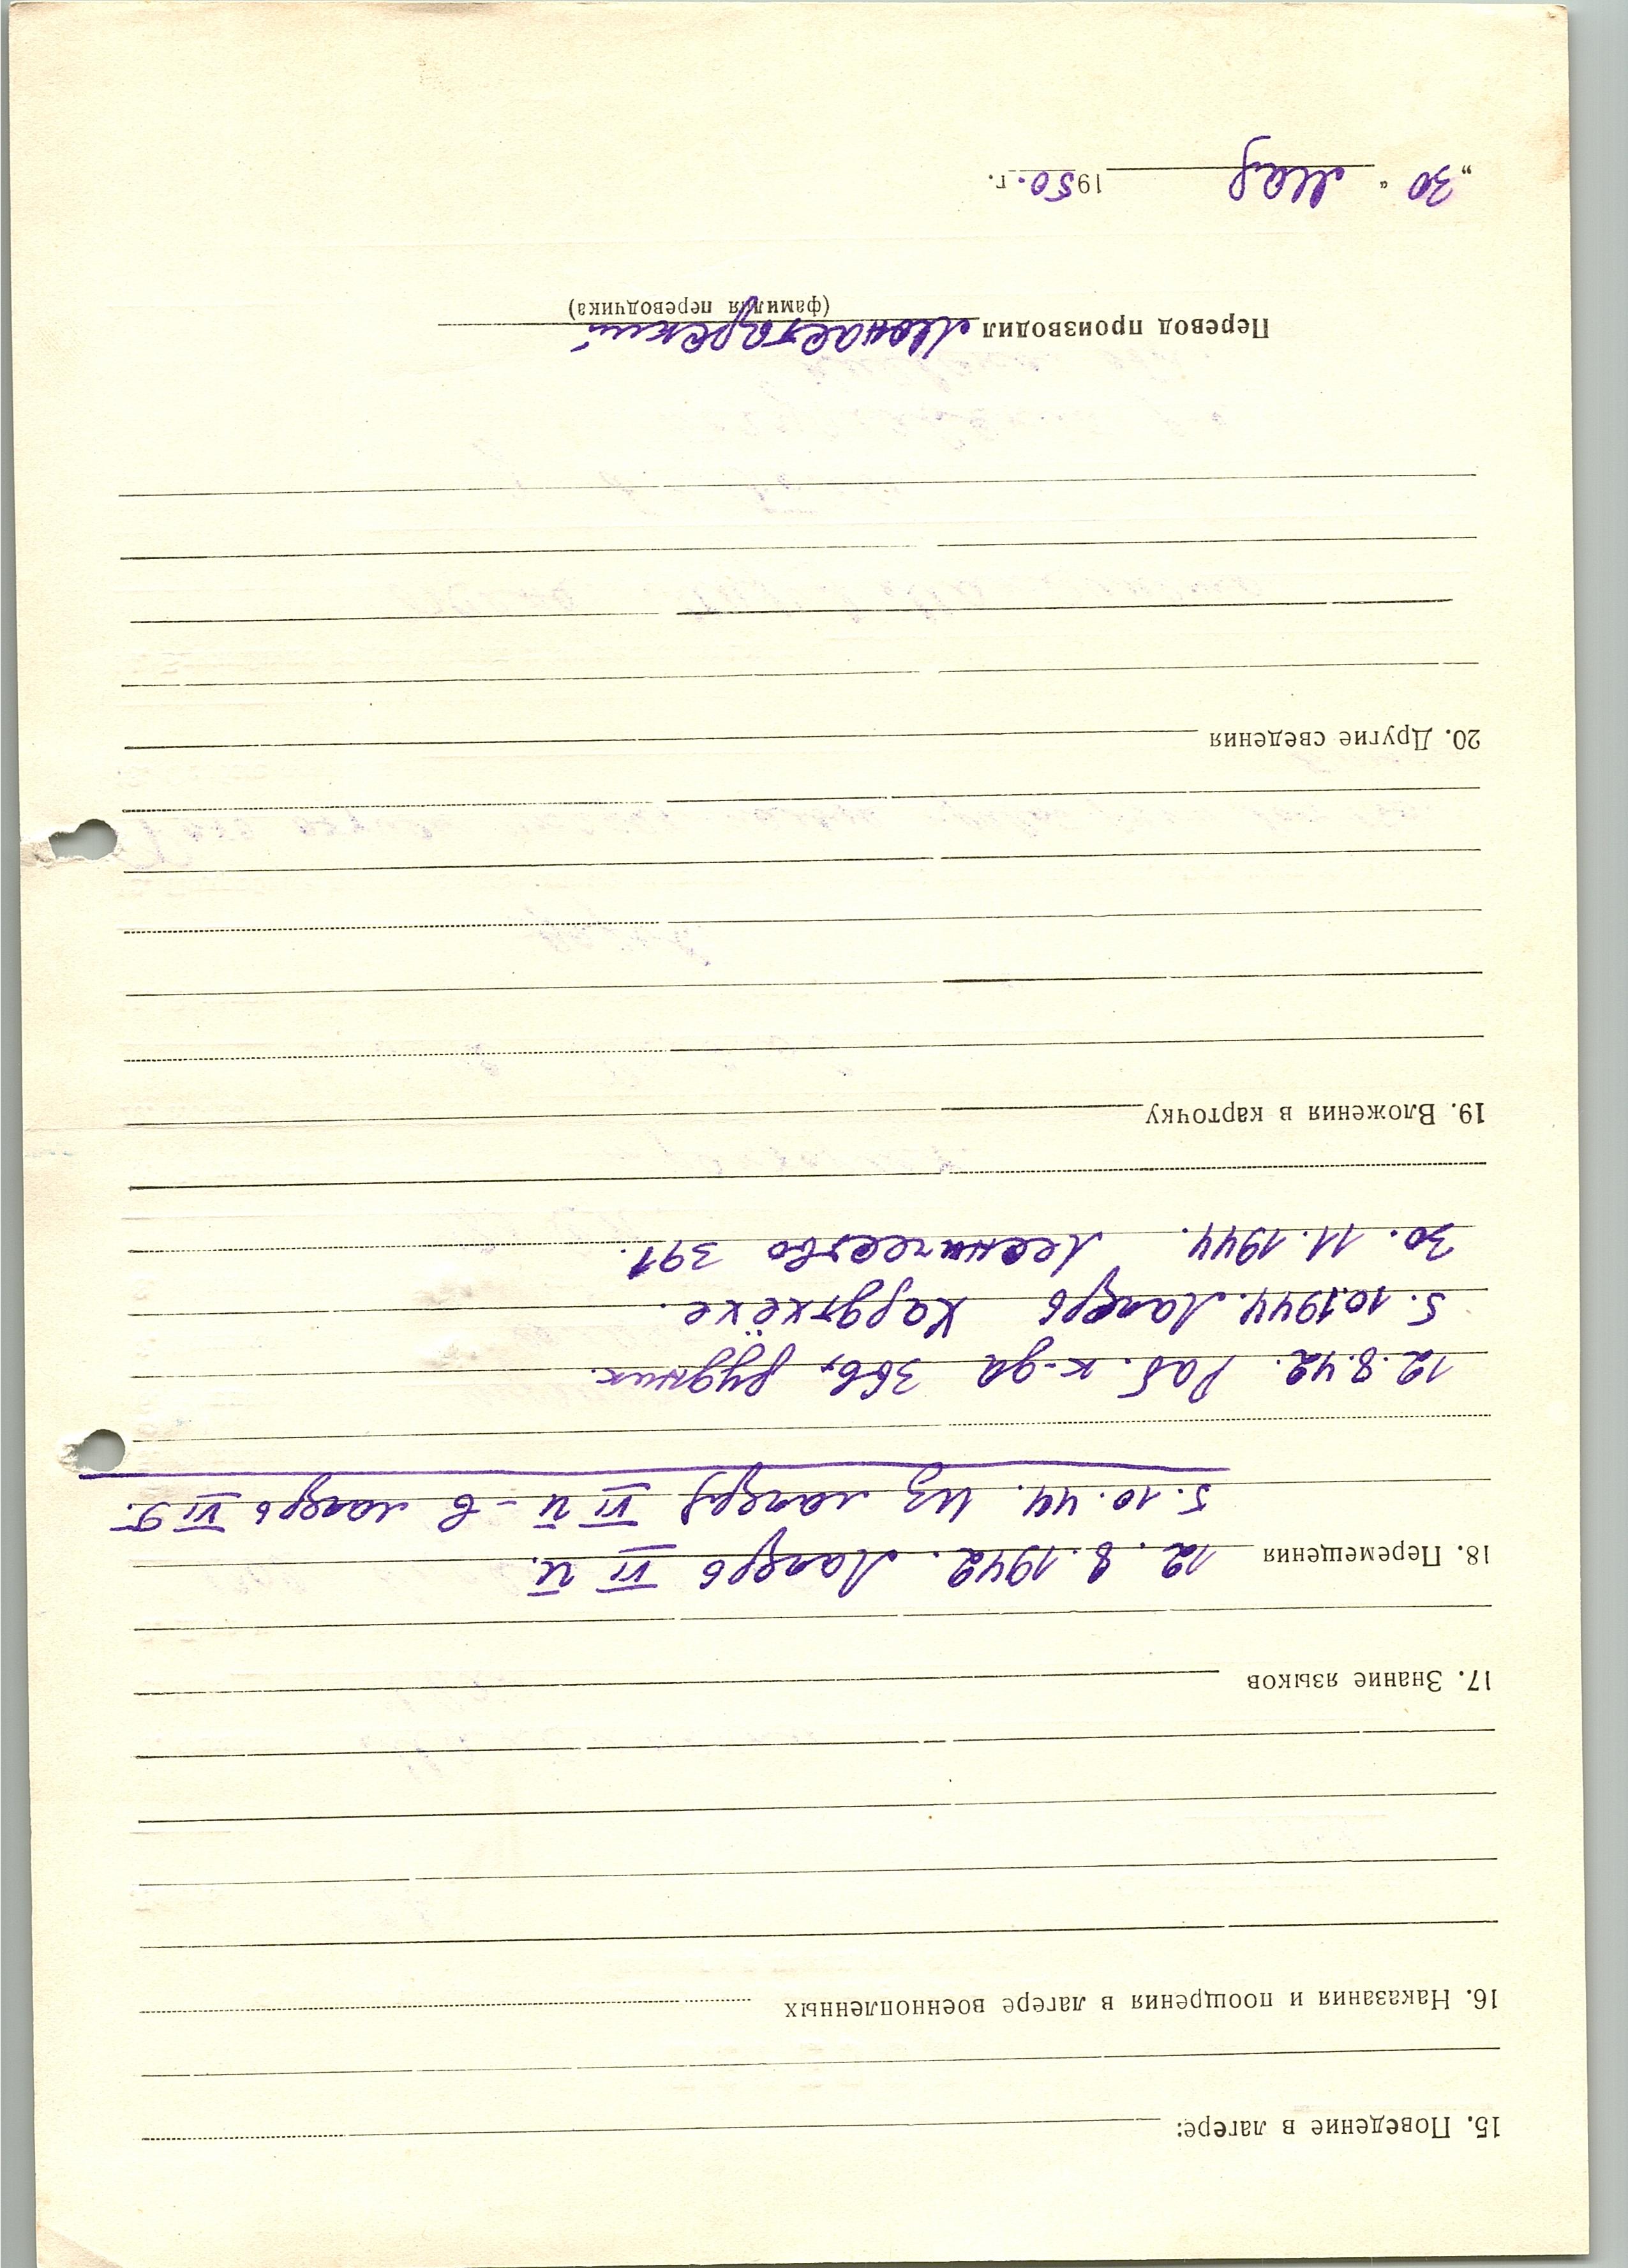 15. Поведение в лагере:
16. Наказания и поощрения в лагере военнопленных
17. Знание языков
18. Перемещения 12.8.1942. Лагерь VI К.
5.10.44. Из лагеря VI К - в лагерь VI
12.8.42. Раб. к-да рудник.
5.10.1944. Лагерь
30.11.1944. Лесничество 391.
19. Вложения в карточку
20. Другие сведения
Перевод производил Монастырский
(фамилия переводчика)
„30“ мая 1950. г.